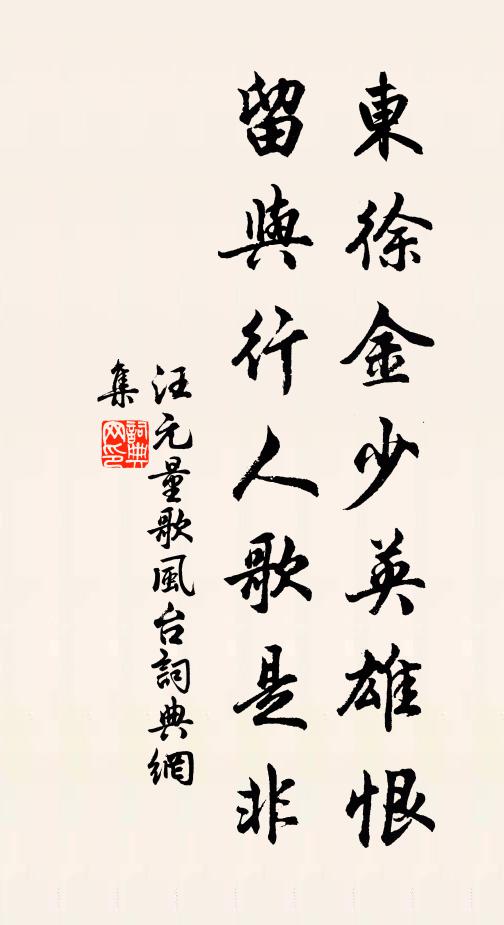 東徐金少英雄恨
留與行人歌是非
汪元量歌風台詞典網
集
詞典
网印